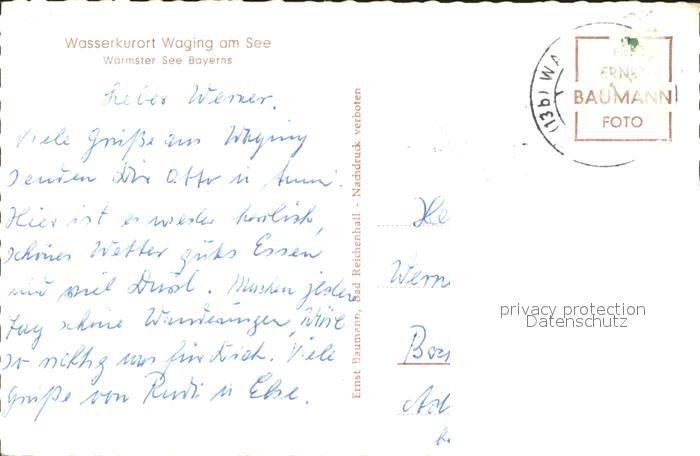 Wasserkurort Waging am See
Wärmster See Bayerns
Lieber Werner.
Viele Grüße aus Waging
senden Dir Otto u Anni.
Hier ist es wieder herrlich,
schönes Wetter gutes Essen
und viel Durst. Machen jeden
Tag schöne Wanderungen, wäre
so richtig was für Dich. Viele
Grüße von Rudi u Else.
Ernst Baumann, Bad Reichenhall - Nachdruck verboten
(13b) WA
ERNST
BAUMANN
FOTO
He
Wern
privacy protection
Datenschutz